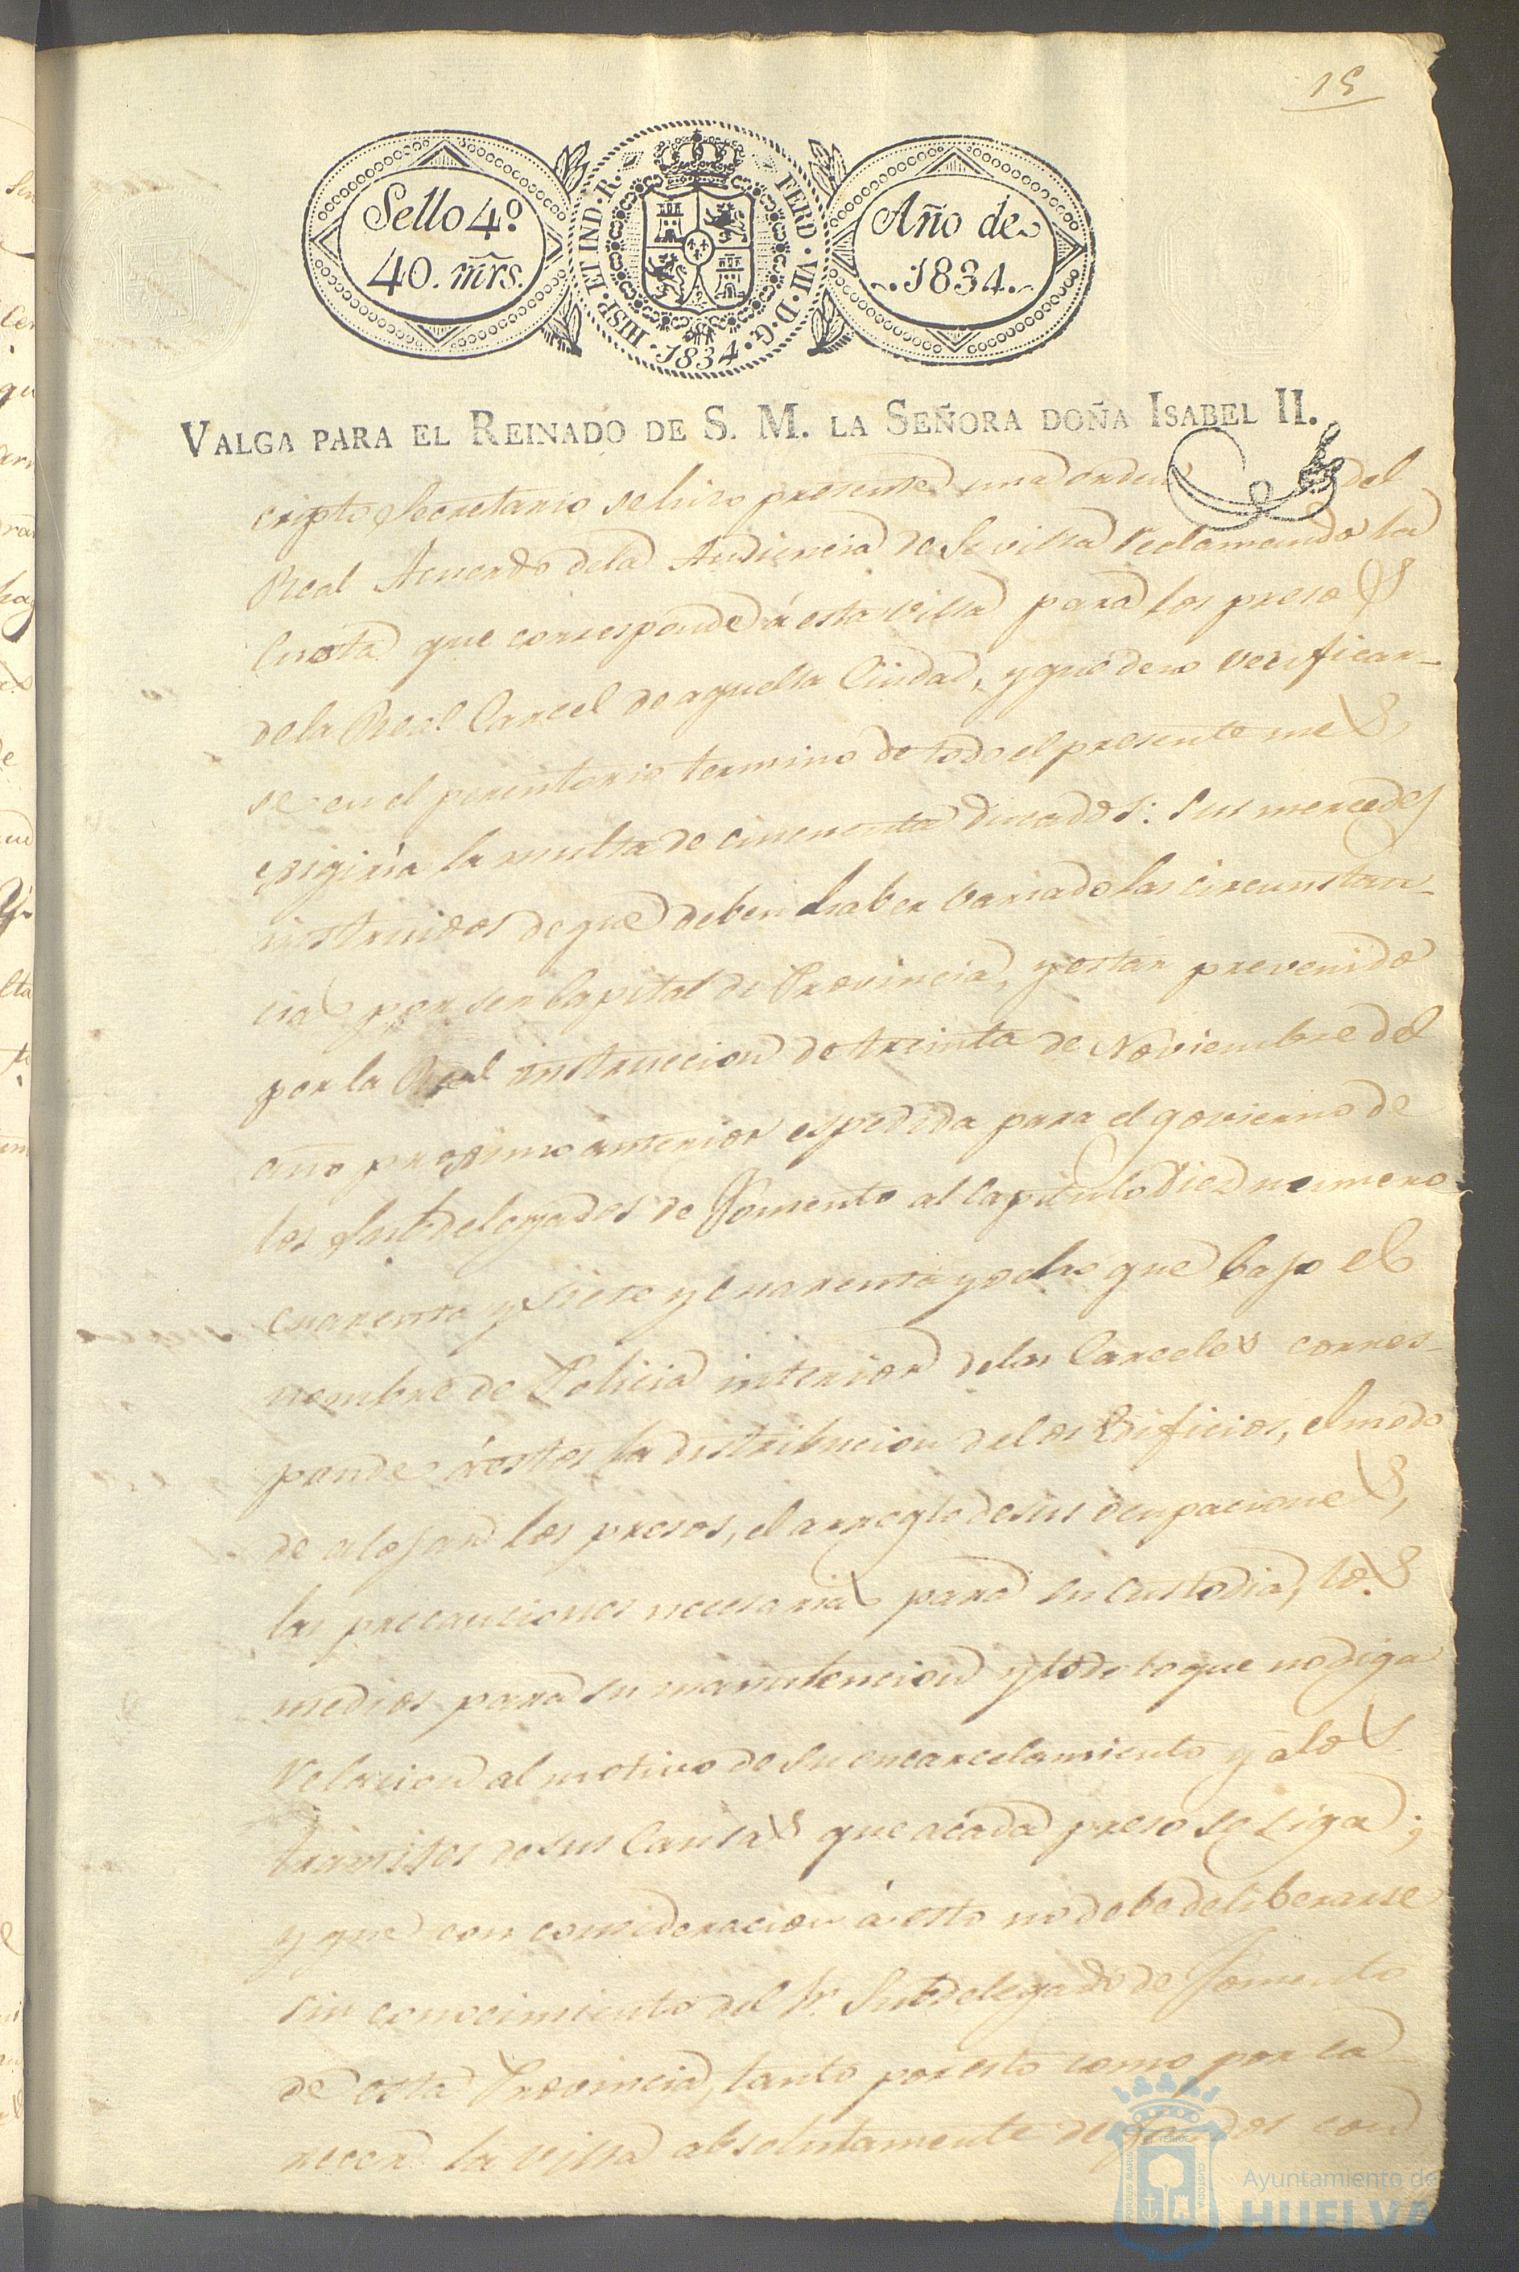 15
Sello 4º
40. mrs.
HISP. ET IND. R. FERD. VII. D. G. 1834.
Año de
1834.
VALGA PARA EL REINADO DE S. M. LA SEÑORA DOÑA ISABEL II.
cripto Secretario se hizo presente una orden del
Real Acuerdo dela Audiencia de Sevilla reclamando la
Cuota que corresponde á esta Villa para los presos
dela Real Carcel de aquella Ciudad, y que de no verificar-
se en el perentorio termino de todo el presente mes,
exigiria la multa de cincuenta ducados: Sus mercedes
instruidos de que deben haber variado las circunstan-
cias por ser Capital de Provincia, y estar prevenido
por la Real instruccion de treinta de Noviembre del
año proximo anterior espedida para el govierno de
los Subdelegados de Fomento al Capitulo Diez numero
cuarenta y siete y cuarenta y ocho que bajo el
nombre de Policia interior delas Carceles corres-
ponde á estos la distribucion delos Edificios, el modo
de alojar los presos, el arreglo de sus ocupaciones,
las precauciones necesarias para su custodia, los
medios para su manutencion y todo lo que no diga
relacion al motivo de su encarcelamiento y á los
tramites de sus Causas que acada preso se siga;
y que con consideracion á esto no debe deliberarse
sin conocimiento del Sr. Subdelegado de Fomento
de esta Provincia, tanto por esto como por ca
recer la Villa absolutamente de fondos con
Ayuntamiento de
HUELVA